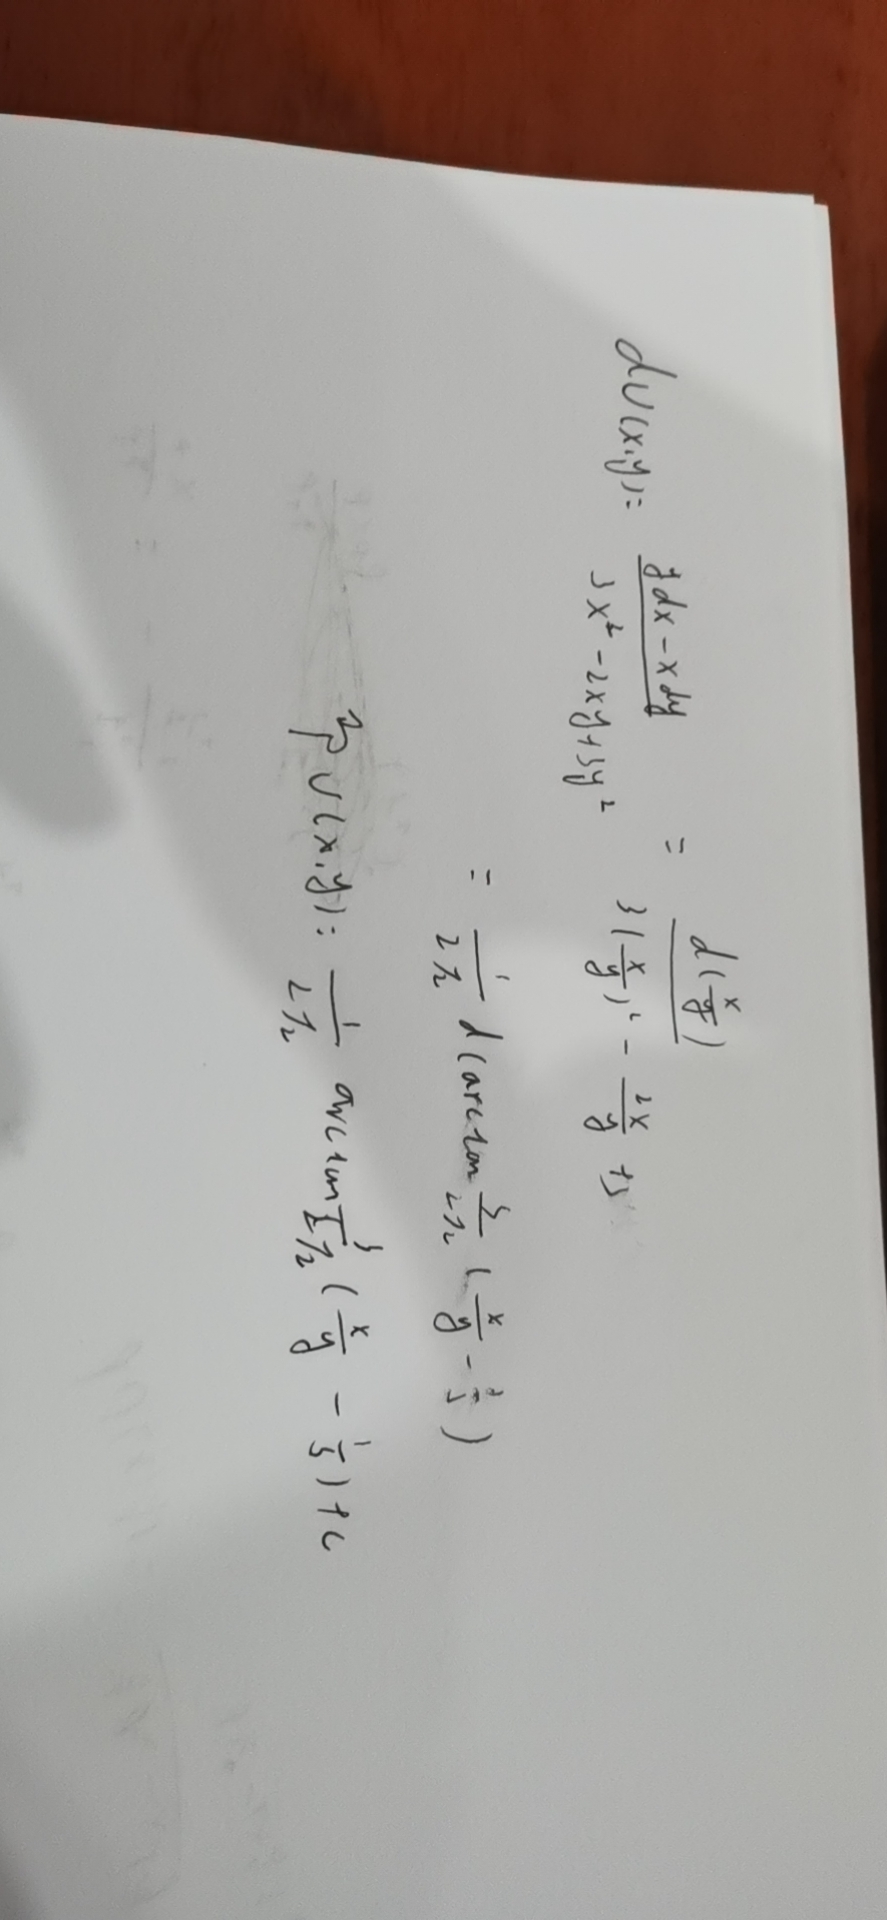 dU(x,y)= \frac{ydx-xdy}{3x^2-2xy+3y^2} = \frac{d(\frac{x}{y})}{3(\frac{x}{y})^2-\frac{2x}{y}+3}
= \frac{1}{2\sqrt{2}} d(arctan \frac{3}{2\sqrt{2}}(\frac{x}{y}-\frac{1}{3})
即U(x,y)=\frac{1}{2\sqrt{2}} arctan \frac{3}{2\sqrt{2}}(\frac{x}{y}-\frac{1}{3})+C